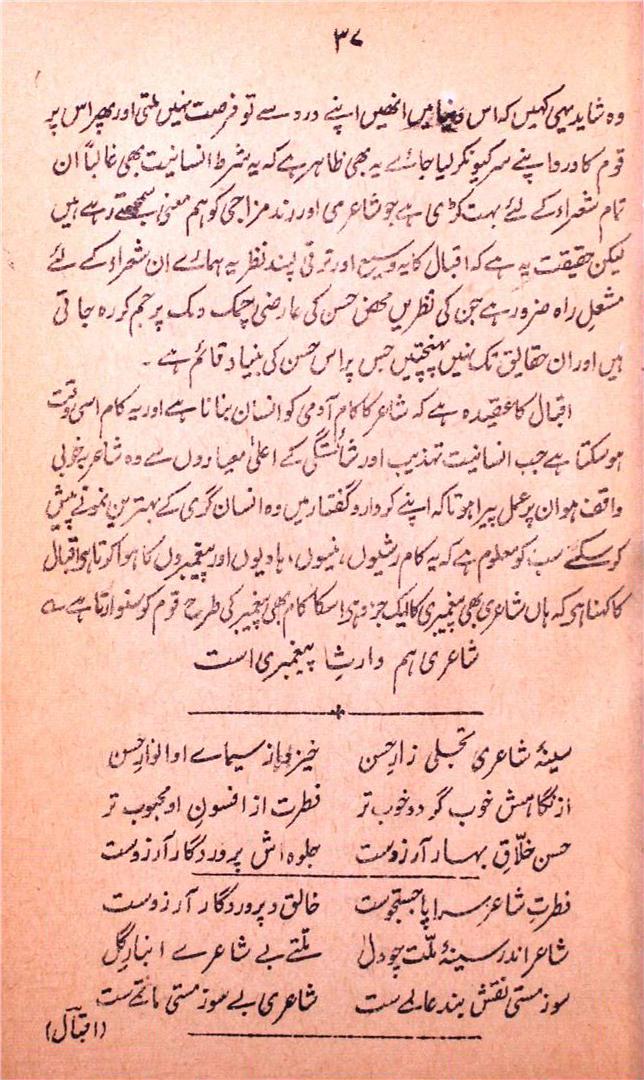 ۳۷
وہ شاید یہی کہیں کہ اس دنیا میں انھیں اپنے درد سے تو فرصت نہیں ملتی اور پھر اس پر
قوم کا درد اپنے سر کیونکر لیا جائے یہ بھی ظاہر ہے کہ یہ شرط انسانیت بھی غالباً ان
تمام شعراء کے لئے بہت کڑی ہے جو شاعری اور رند مزاجی کو ہم معنی اب سمجھتے رہے ہیں
لیکن حقیقت یہ ہے کہ اقبال کا یہ وسیع اور ترقی پسند نظریہ ہمارے ان شعراء کے لئے
مشعلِ راہ ضرور ہے جن کی نظریں محض حسن کی عارضی چمک دمک پر جم کر رہ جاتی
ہیں اور ان حقایق تک نہیں پہنچتیں جس پر اس حسن کی بنیاد قائم ہے ۔
اقبال کا عقیدہ ہے کہ شاعر کا کام آدمی کو انسان بنانا ہے اور یہ کام اسی وقت
ہو سکتا ہے جب انسانیت تہذیب اور شائستگی کے اعلیٰ معیاروں سے وہ شاعر بہ خوبی
واقف ہو ان پر عمل پیرا ہو تاکہ اپنے کردار و گفتار میں وہ انسان گری کے بہترین نمونے پیش
کر سکے سب کو معلوم ہے کہ یہ کام رشیوں، نبیوں، ہادیوں اور پیغمبروں کا ہوا کرتا ہی اقبال
کا کہنا ہی کہ ہاں شاعری بھی پیغمبری کا ایک جزو ہی اسکا کام بھی پیغمبر کی طرح قوم کو سنوارنا ہے ؎
شاعری ہم وارثِ پیغمبری است
سینۂ شاعری تجلی زارِ حسن خیزد از سیمائے او انوارِ حسن
از نگاہش خوب گردد خوب تر فطرت از افسونِ او محبوب تر
حسن خلّاقِ بہارِ آرزوست جلوہ اش پروردگارِ آرزوست
فطرتِ شاعر سراپا جستجوست خالق و پروردگارِ آرزوست
شاعر اندر سینۂ ملّت چو دل ملّتے بے شاعرے انبارِ گل
سوز مستی نقش بند عالمے ست شاعری بے سوز مستی ماتمے ست
(اقبالؔ)